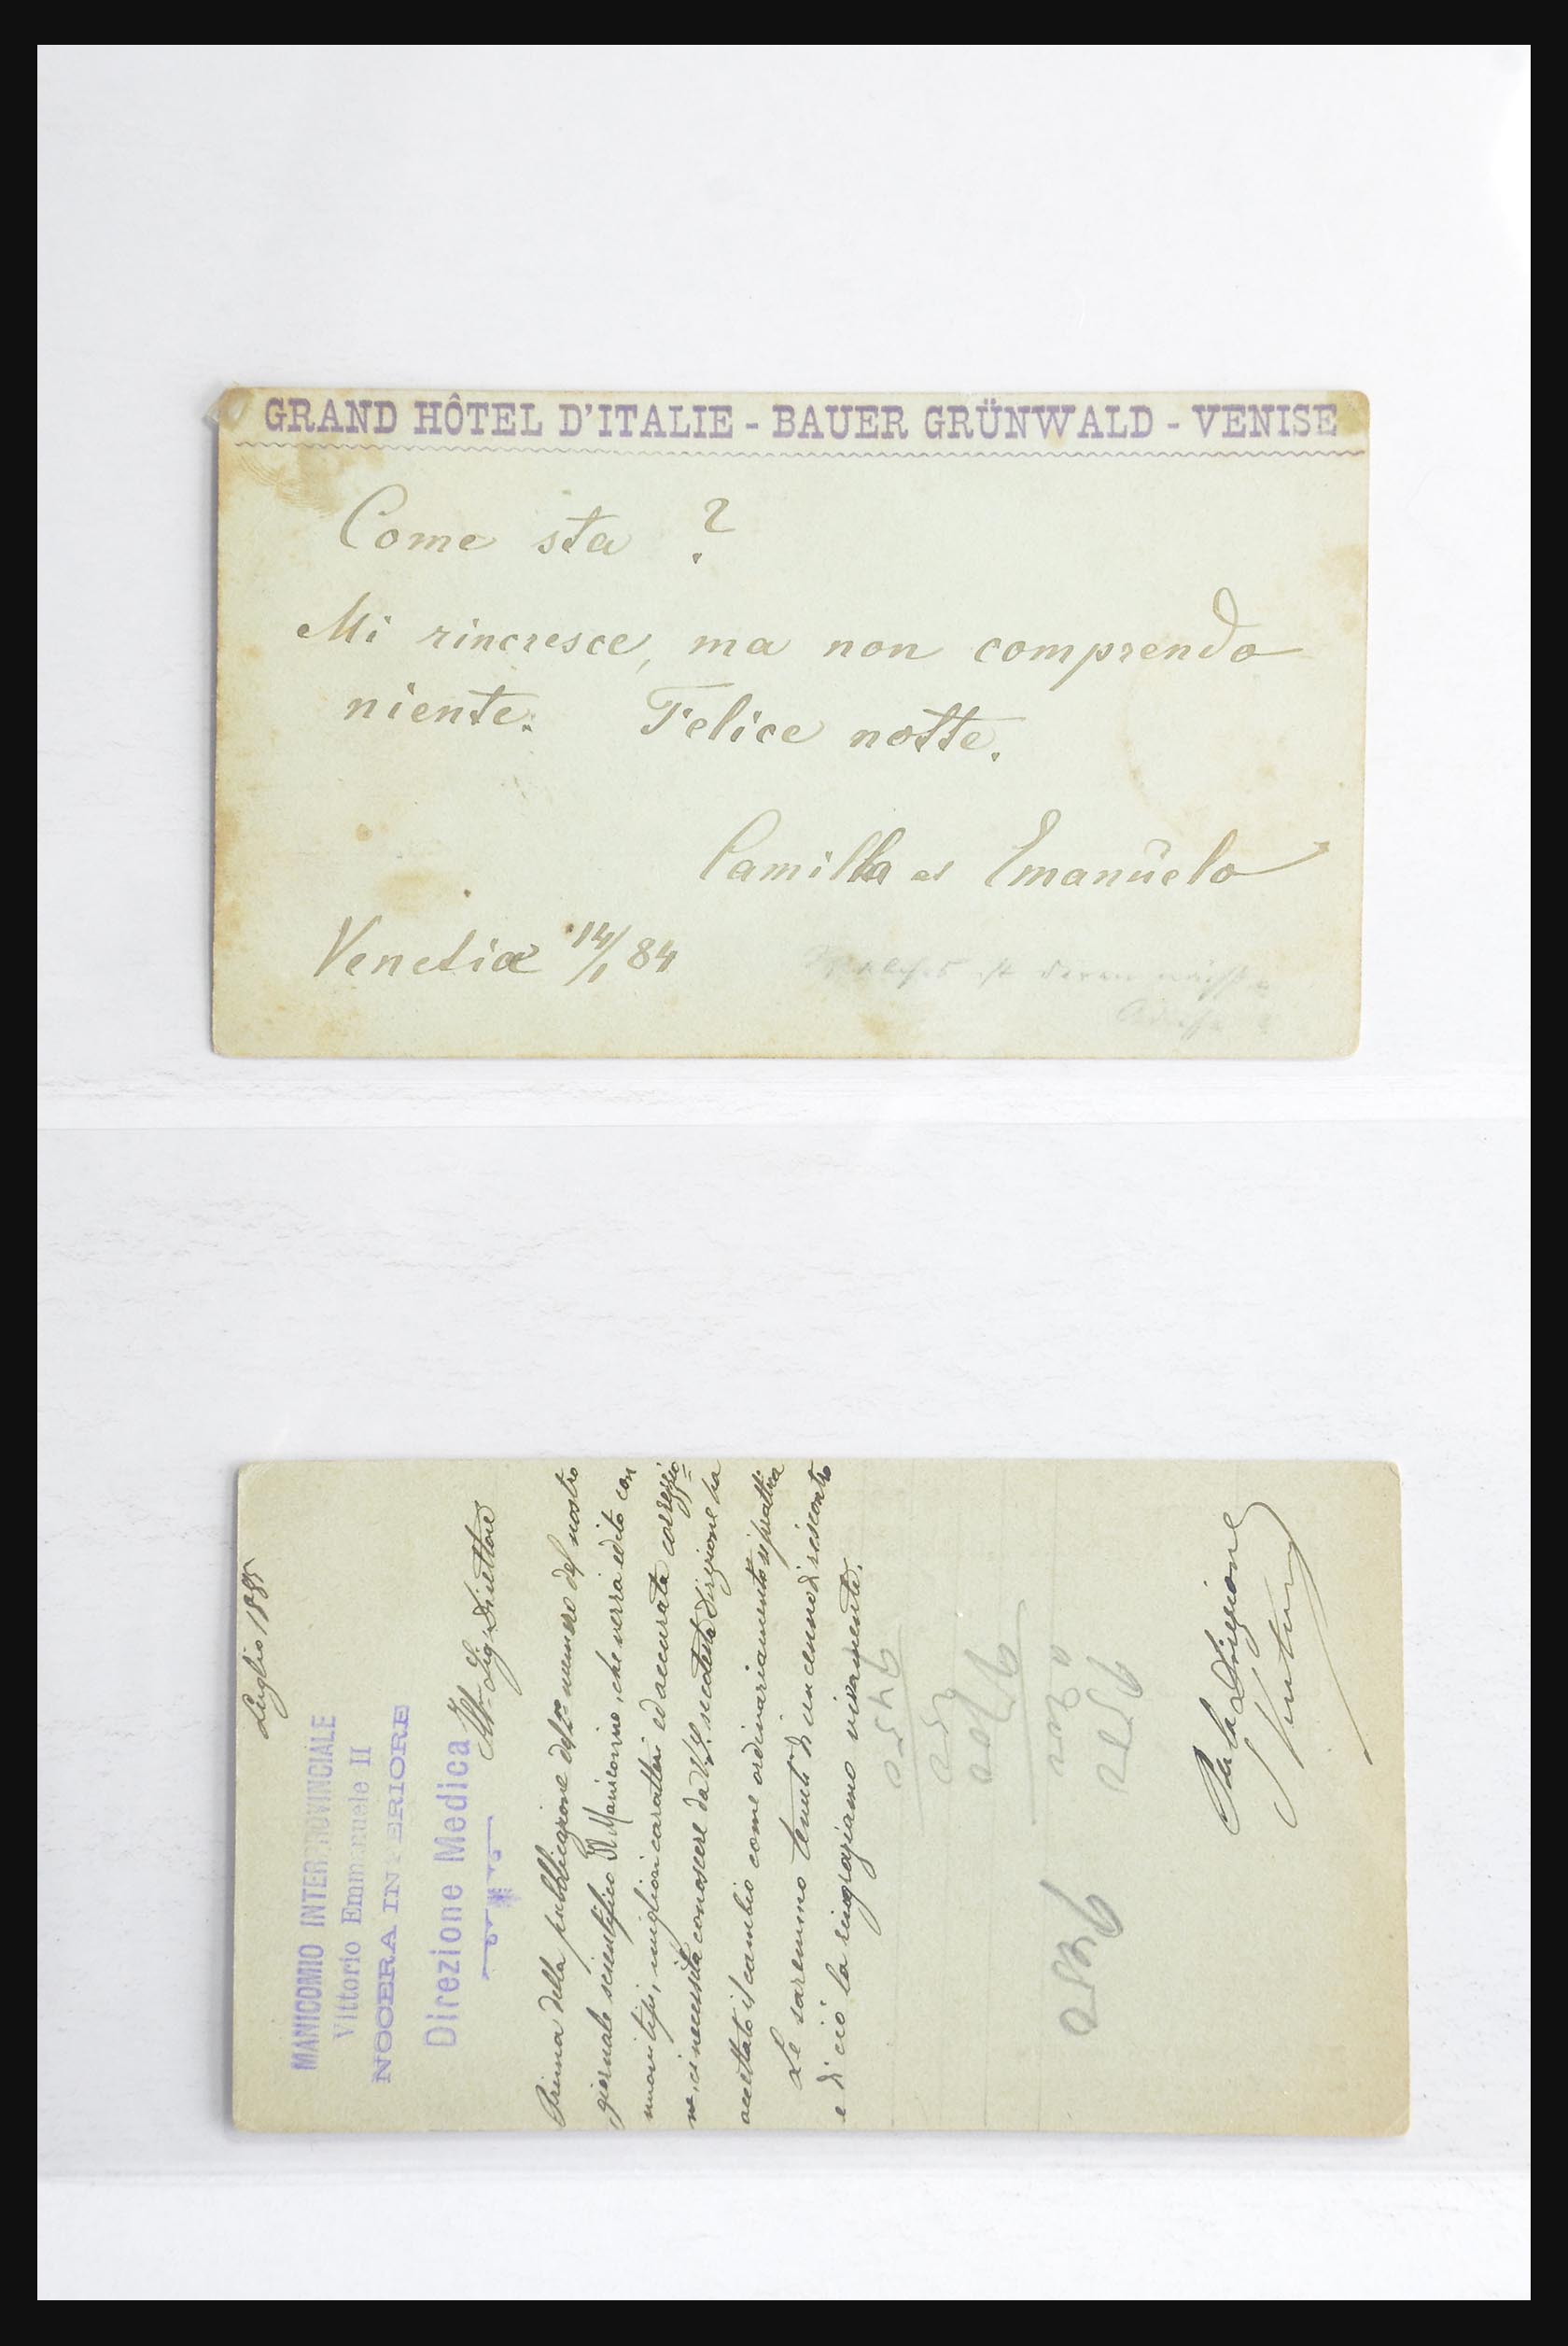 GRAND HÔTEL D'ITALIE - BAUER GRÜNWALD - VENISE
Come sta ?
Mi rincresce, ma non comprendo
niente. Felice notte.
Camilla et Emanŭelo
Venetia 14/1 84
Luglio 1885
MANICOMIO INTERPROVINCIALE
Vittorio Emmanuele II
NOCERA INFERIORE
Direzione Medica
Sig. Direttore
Prima della pubblicazione del numero del nostro
giornale scientifico Il Manicomio, che verrà edito con
nuovi tipi, migliori caratteri ed accurata correzio=
ne, ci necessita conoscere da V.S. se codesta Direzione ha
accettato il cambio come ordinariamente si prattica
Le saremmo tenuti di un cenno di riscontro
e di ciò la ringraziamo vivamente.
Per la Direzione